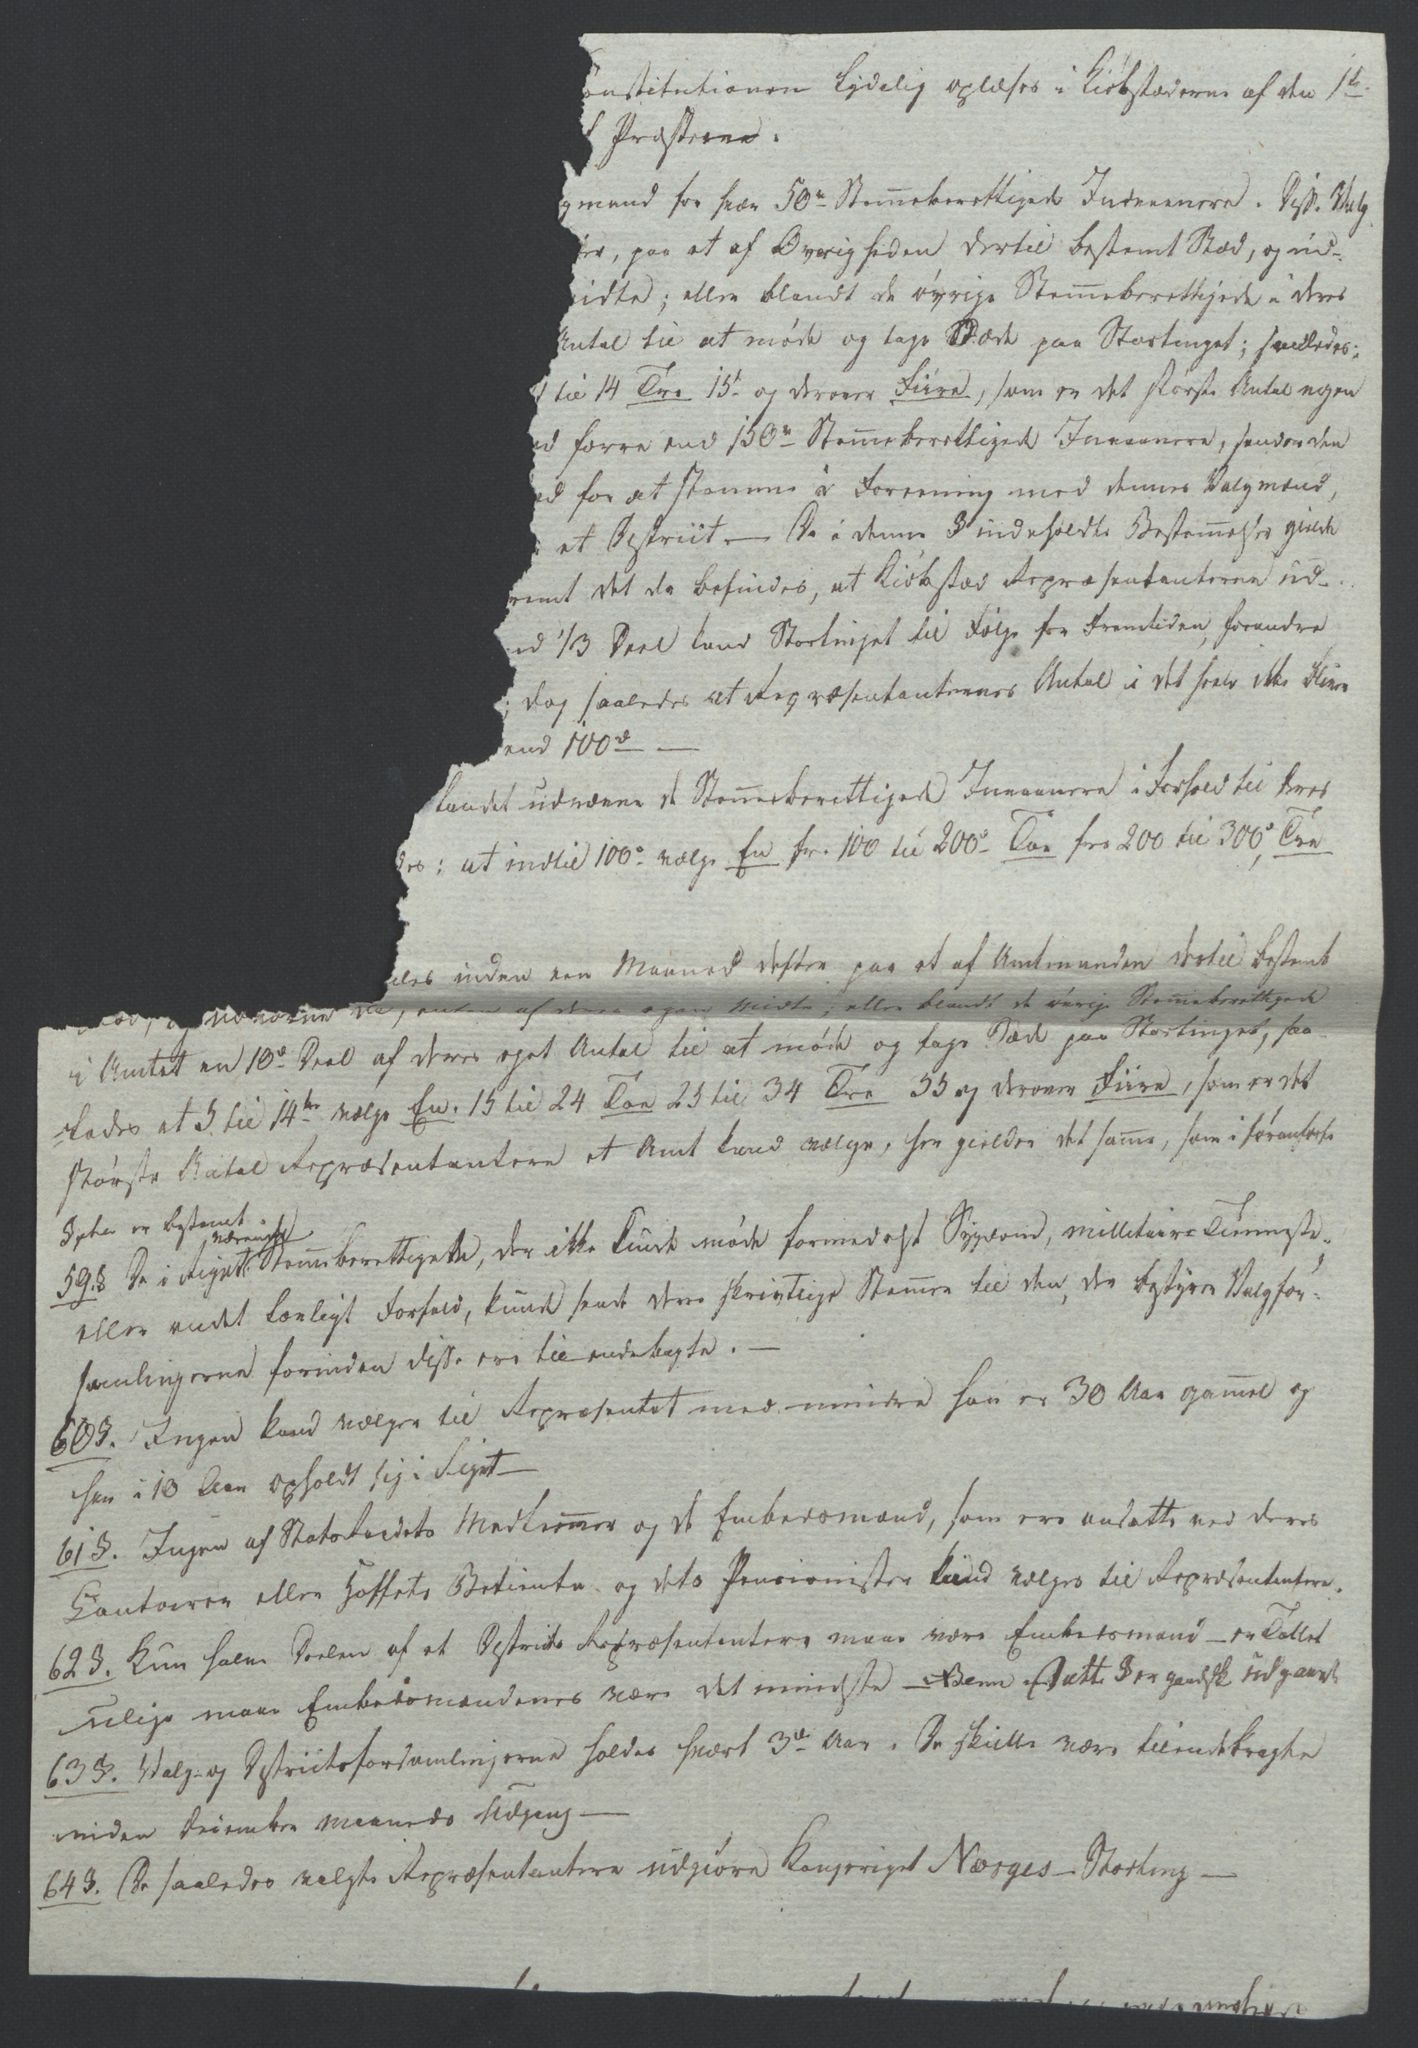 onstitutionen lydelig oplæses i Kiöbstæderne af den 1te
Præsterne.
gmand for hver 50de Stemeberettigede Indvaanere. Disse Valg
paa et af Øvrigheden dertil bestemt Stæd, og ud-
idte; eller blandt de övrige Stemeberettigede i deres
Antal til at möde og tage Sæde paa Stortinget; saaledes;
til 14 Tre 15 og derover Fiire, som er det störste Antal nogen
d færre end 150de Stemeberettigede Indvaanere, sender den
ed for at stemme i Forening med dennes Valgmænd,
et Destrict — De i denne § indeholdte Bestemelser gielde
remt det da befindes, at Kiöbstæd Repræsentanterne ud-
nd 1/3 Deel kand Stortinget til Fölge for Fremtiden, forandre
; dog saaledes at Repræsentanternes Antal i det heele ikke bliver
end 100de —
Landet udnævne de Stemeberettigede Indvaanere i Forhold til deres
des; at indtil 100de vælge En fra 100 til 200de Toe fra 200 til 300de Tre
les inden een Maaned defter paa et af Amtmanden dertil bestemt
Stæd, og udnævne da, enten af deres egen Midte; eller blandt de övrige Stemeberettigede
i Amtet en 10de Deel af deres eget Antal til at möde og tage Sæde paa Stortinget, saa-
ledes at 5 til 14ten vælge En. 15 til 24 Toe 25 til 34 Tre 35 og derover Fiire, som er det
störste Antal Repræsentantere et Amt kand vælge, her gielder det samme, som i foranförte
§pher er bestemt.
59.§ De i Riget værende Stemeberettigede, der ikke kunde möde formedelst Sygdom, millitaire Tienneste-
eller andet lovligt Forfald, kunde sende deres skrivtlige Stemer til den, der bestyrer Valgfor-
samlingerne forinden disse ere til endebragte. —
60§. Ingen kand vælges til Repræsentat med mindre han er 30 Aar gammel og
har i 10 Aar opholdt sig i Riget —
61§. Ingen af StatsRaadets Medlemmer og de Embedsmænd, som ere ansatte ved deres
Contoirer eller Hoffets Betiente og dets Pensionister kand vælges til Repræsentantere.
62§. Kun halve Deelen af et Destricts Repræsentantere maae være Embedsmænd — er Tallet
ulige maae Embedsmændenes være det mindste — Denne Dette § er gandsk udgaaet
63§. Valg- og Destrictsforsamlingerne holdes hvært 3de Aar. De skulle være tilendebragte
inden Decembr Maaneds Udgang —
64§. De saaledes valgte Repræsentantere udgiöre Kongeriget Norges — Storting —